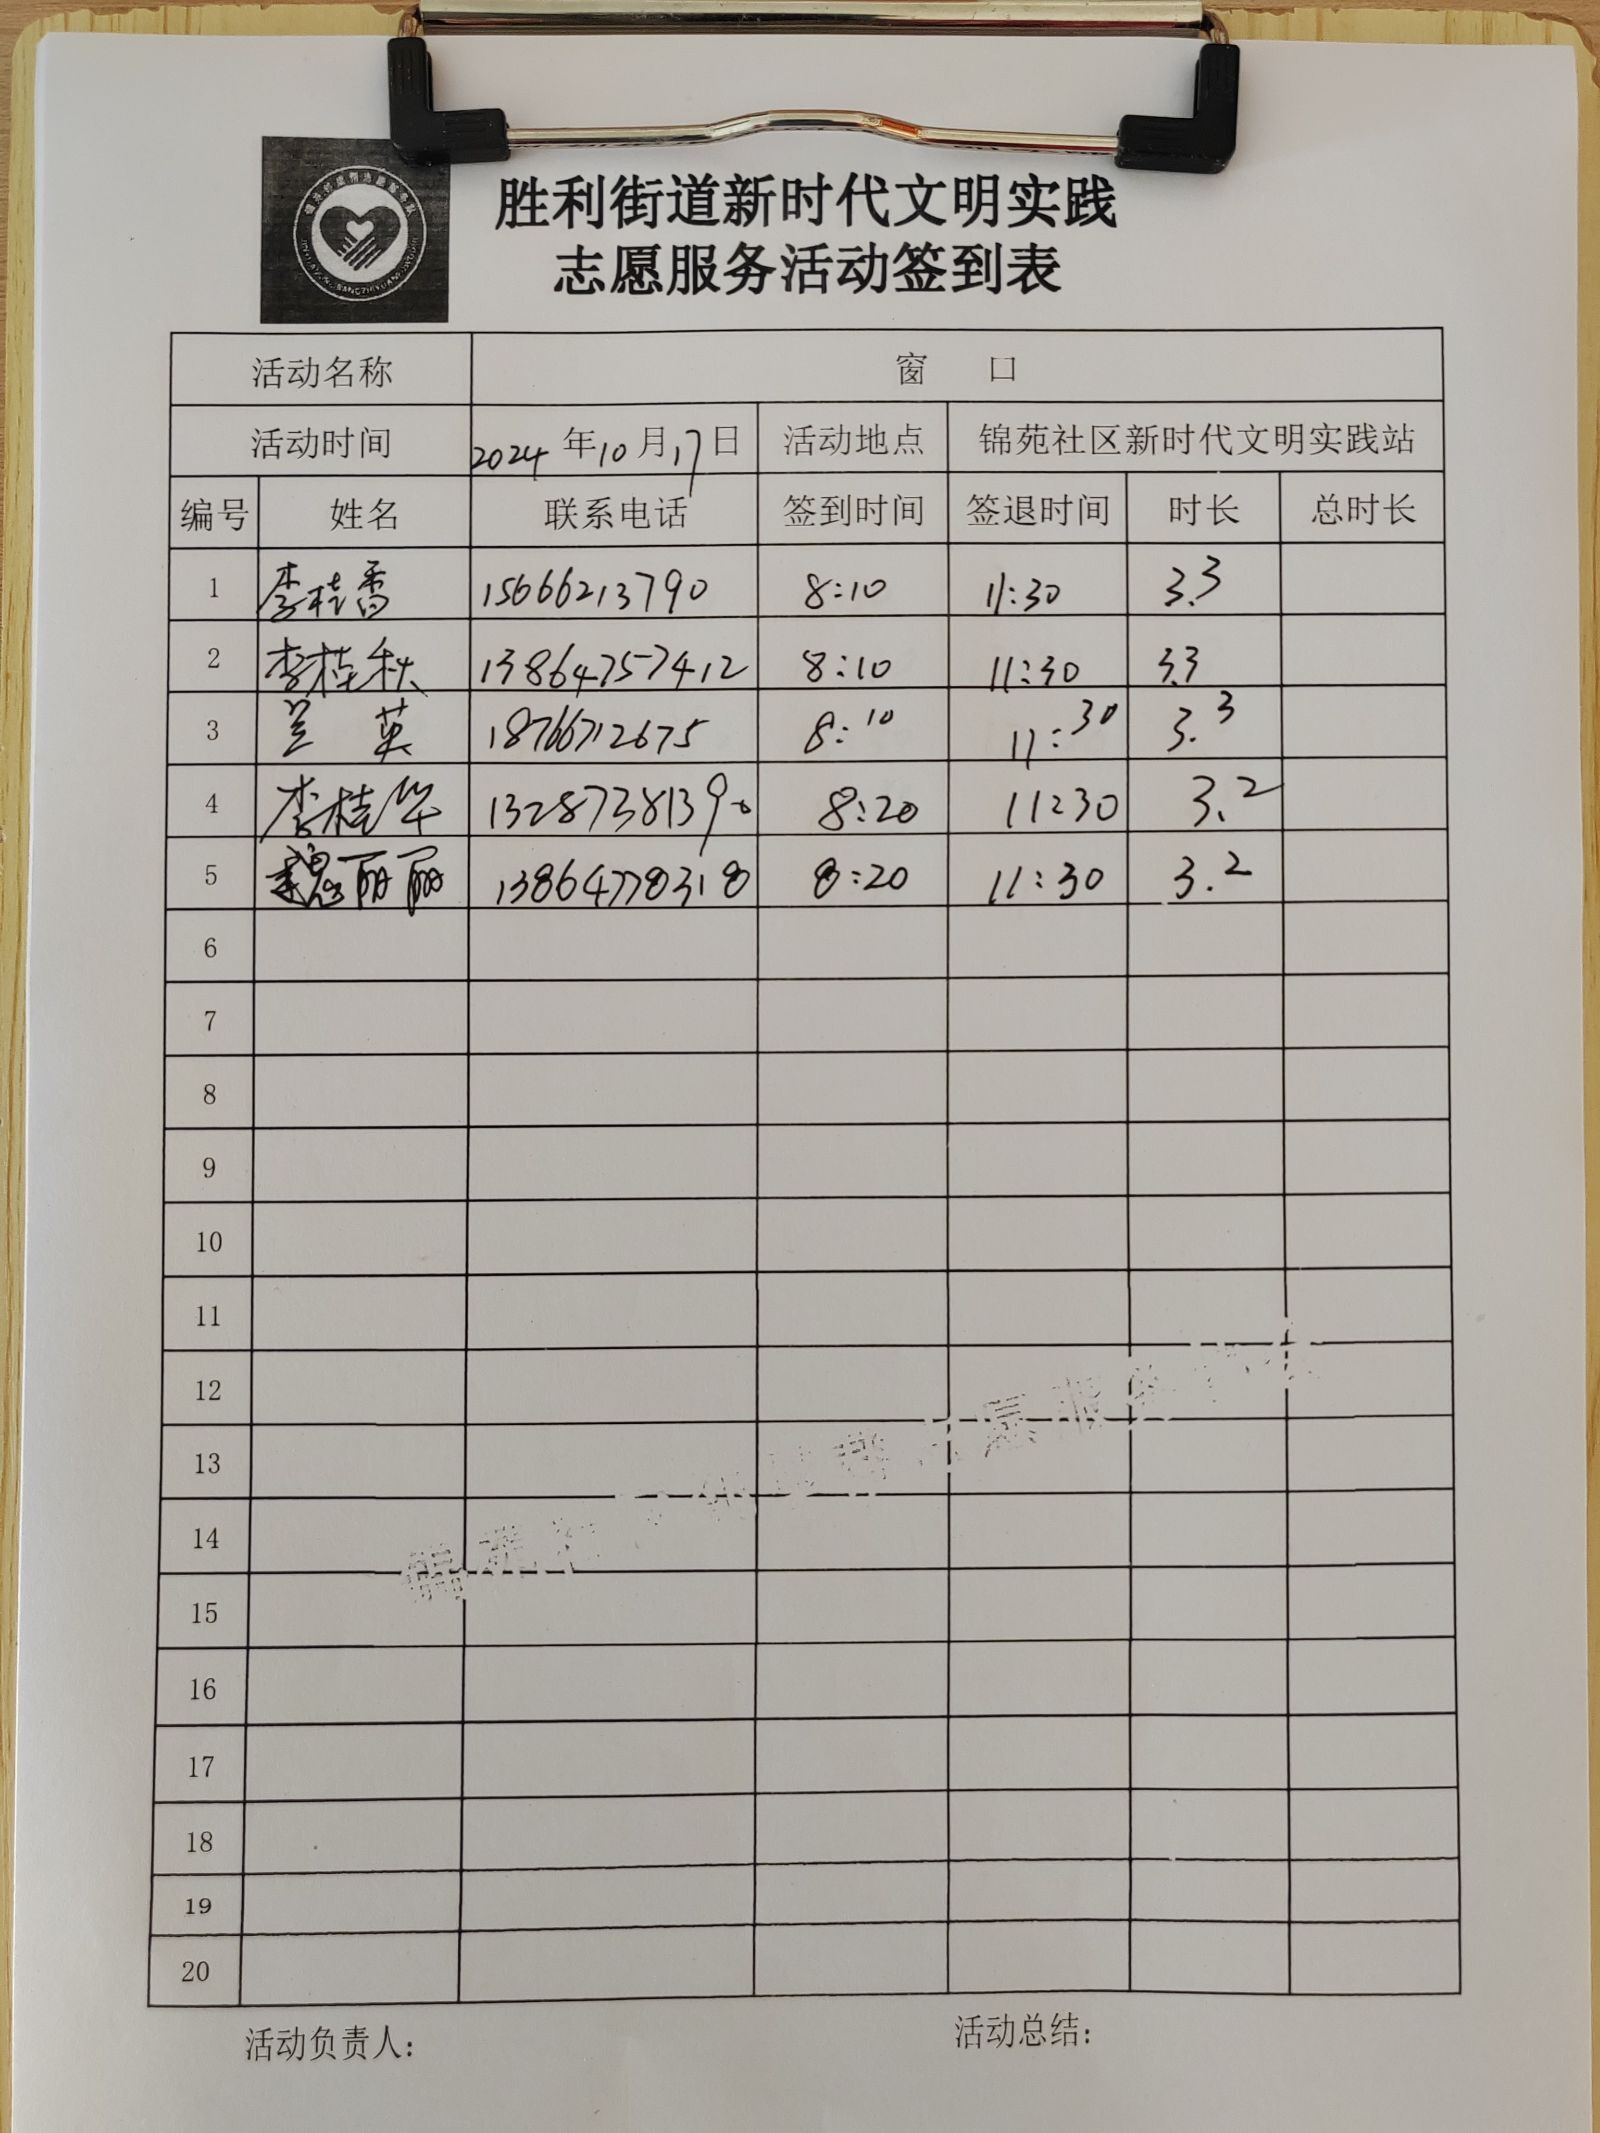 胜利街道新时代文明实践
志愿服务活动签到表
活动名称 窗 口
活动时间 2024年10月17日 活动地点 锦苑社区新时代文明实践站
编号 姓名 联系电话 签到时间 签退时间 时长 总时长
1 李桂香 15666213790 8:10 11:30 3.3
2 李桂秋 13864757412 8:10 11:30 3.3
3 兰英 18766712675 8:10 11:30 3.3
4 李桂华 13287381390 8:20 11:30 3.2
5 魏丽丽 13864778318 8:20 11:30 3.2
6
7
8
9
10
11
12
13
14
15
16
17
18
19
20
活动负责人: 活动总结: